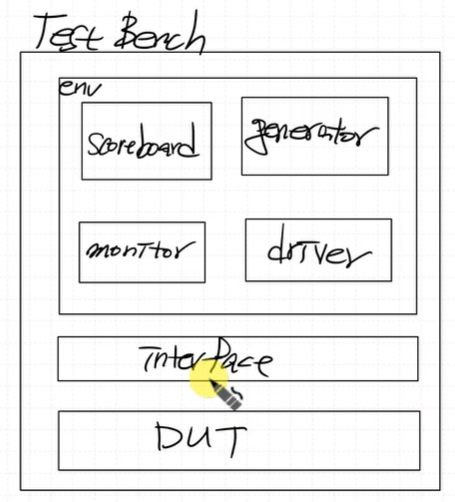 Test Bench
env
scoreboard
generator
monitor
driver
interface
DUT